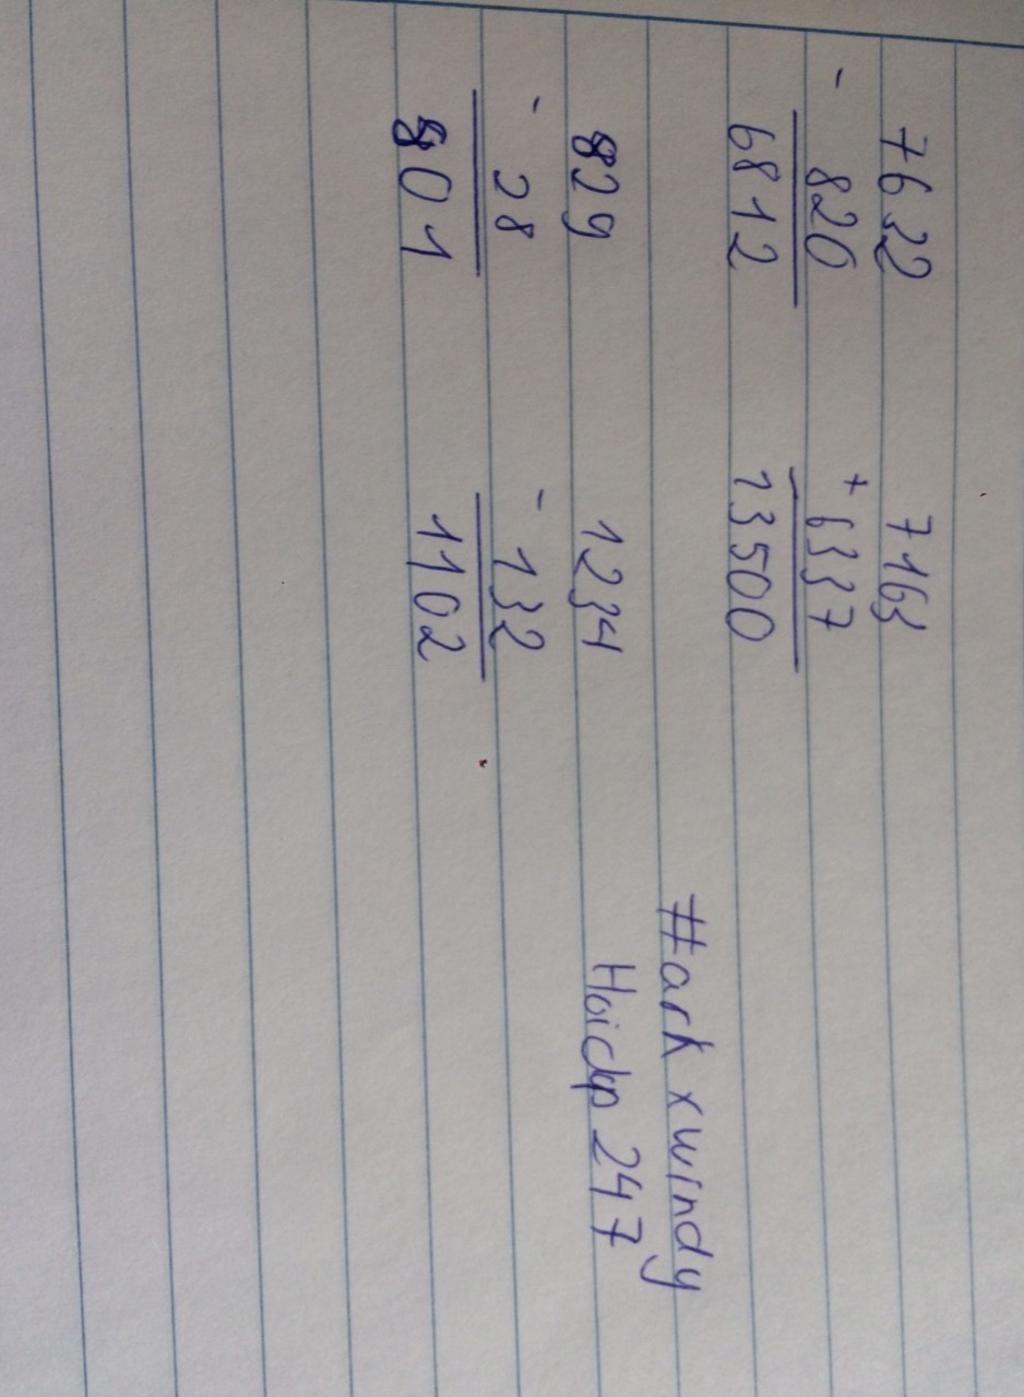 7632 7163
- 820 + 6337
6812 13500
829 1234
- 28 - 132
801 1102
#ark xwindy
Hoidap 247